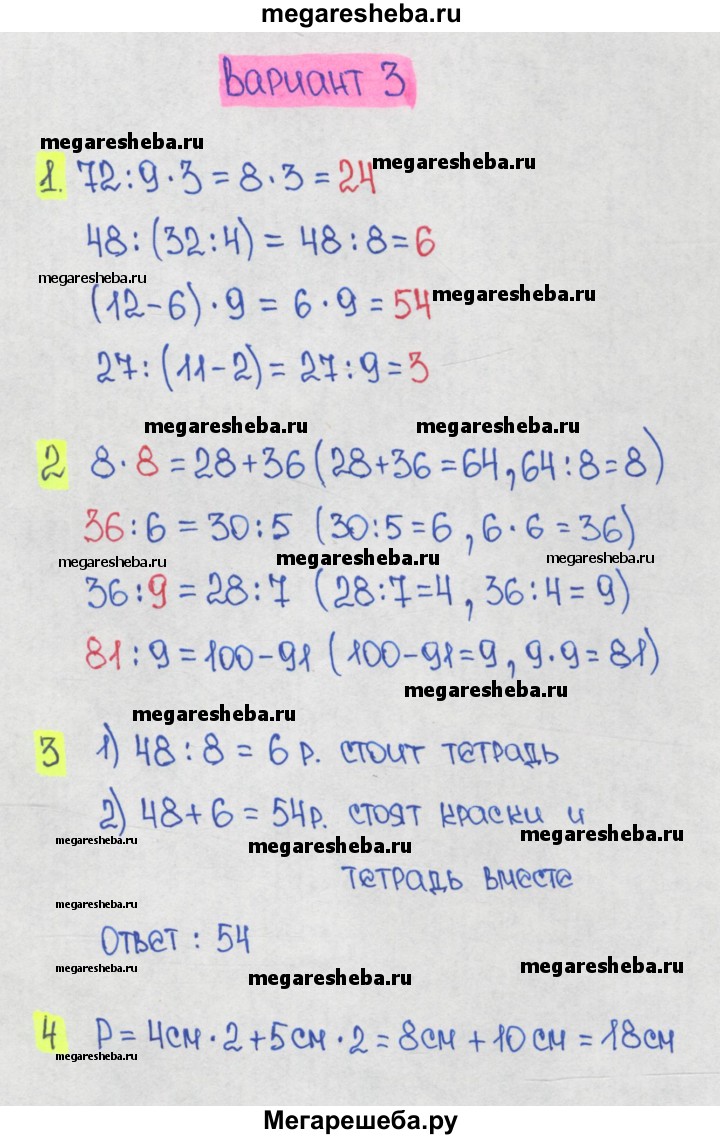 megaresheba.ru
Вариант 3
megaresheba.ru
megaresheba.ru
1. 72:9·3=8·3=24
48:(32:4)=48:8=6
megaresheba.ru
megaresheba.ru
(12-6)·9=6·9=54
27:(11-2)=27:9=3
megaresheba.ru
megaresheba.ru
2 8·8=28+36(28+36=64,64:8=8)
36:6=30:5 (30:5=6,6·6=36)
megaresheba.ru
megaresheba.ru
megaresheba.ru
36:9=28:7 (28:7=4, 36:4=9)
81:9=100-91 (100-91=9, 9·9=81)
megaresheba.ru
megaresheba.ru
3 1) 48:8=6 р. стоит тетрадь
2) 48+6=54р. стоят краски и
megaresheba.ru
megaresheba.ru
megaresheba.ru
тетрадь вместе
megaresheba.ru
Ответ: 54
megaresheba.ru
megaresheba.ru
megaresheba.ru
4 P=4см·2+5см·2=8см+10см=18см
megaresheba.ru
Мегарешеба.ру